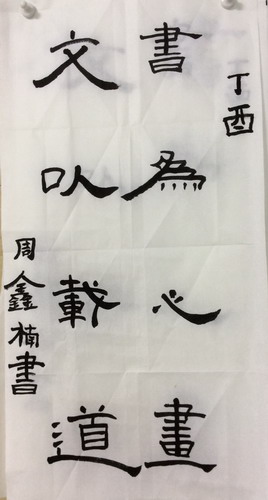 丁酉
書為心畫
文以載道
周鑫楠書